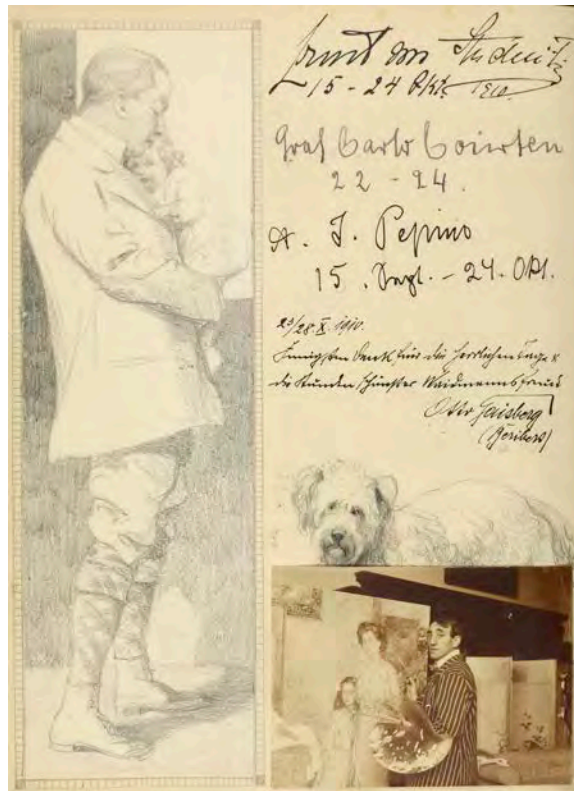 Ernst von Studnitz
15 - 24 Okt. 1910.
Graf Carlo Courten
22 - 24.
A. J. Pepino
15. Sept. - 24. Okt.
23/28. X. 1910.
Innigsten Dank für die herrlichen Tage &
die Stunden schönster Waidmannsfreud
Otto Gaisberg